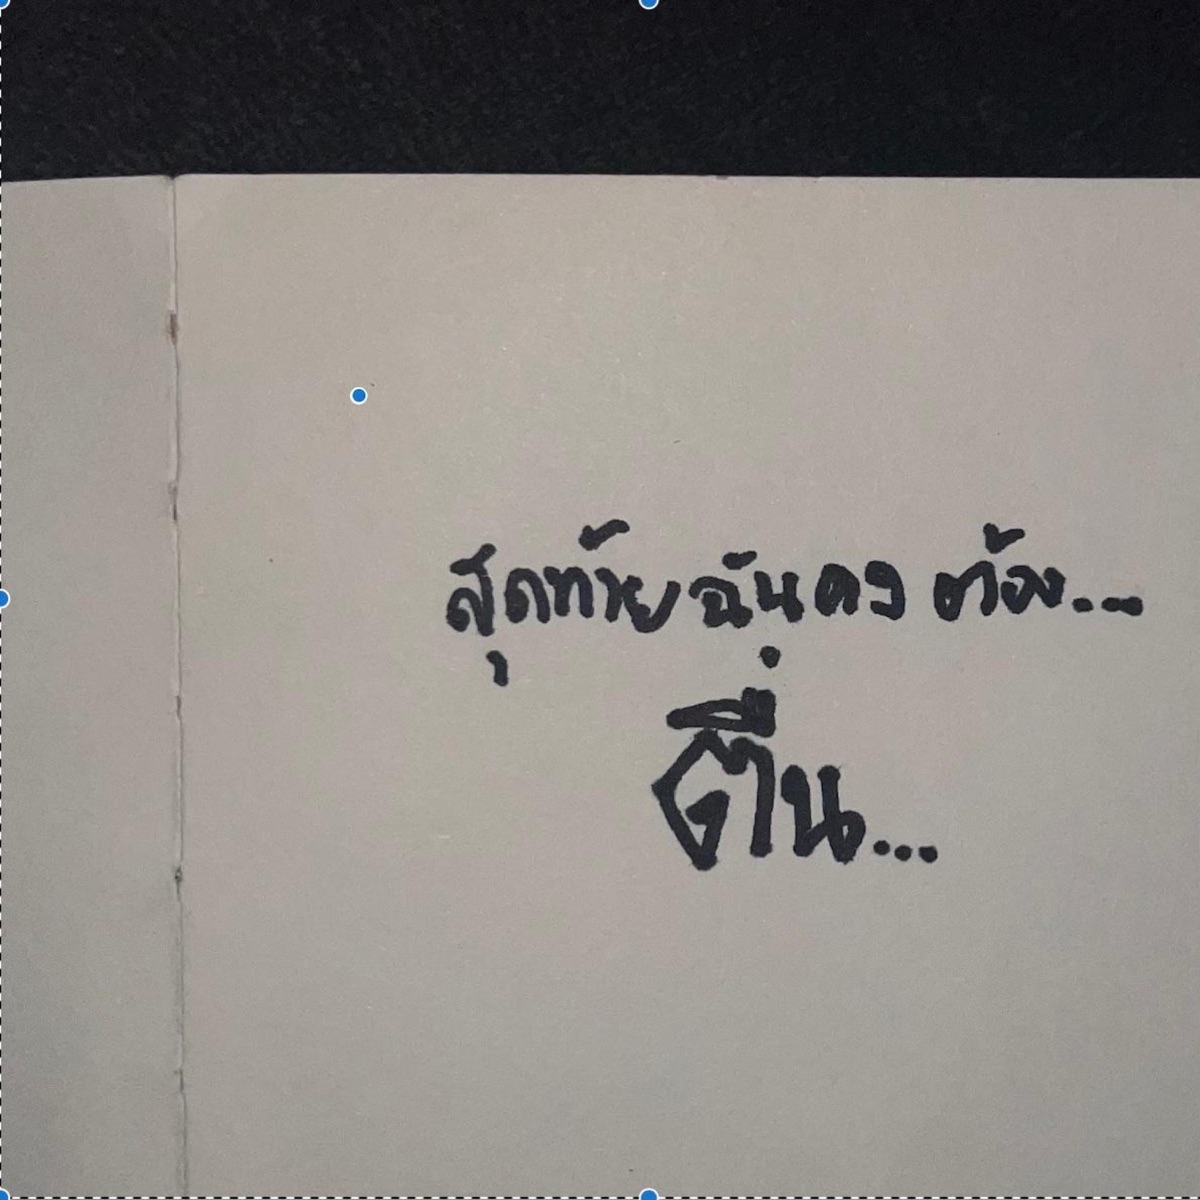 สุดท้ายฉันคง ต้อง...
ตื่น...